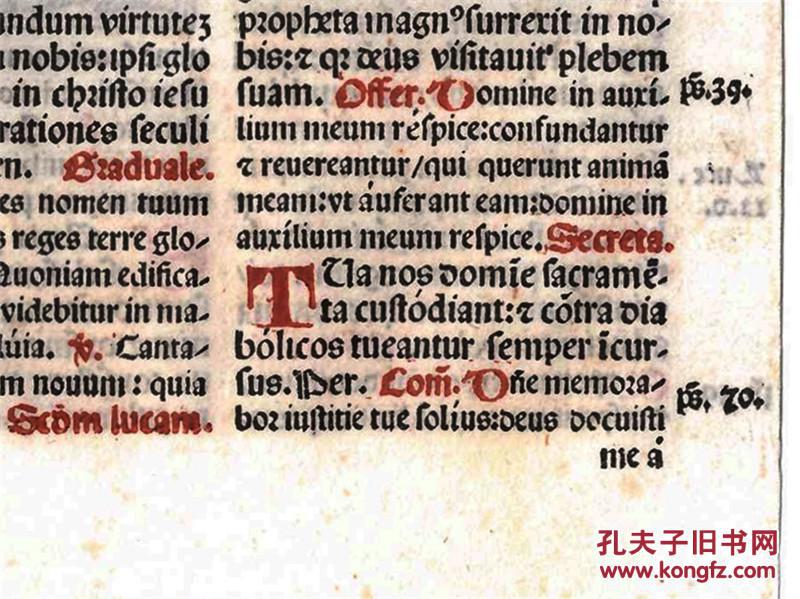 undum virtuteʒ
nobis:ipſi glo
in chꝛiſto ieſu
rationes ſeculi
en. Graduale.
es nomen tuum
s reges terre glo⸗
Quoniam edifica⸗
videbitur in ma⸗
lúia. ℣. Canta⸗
m nouum: quia
Scḋm lucam.
pꝛopheta magnꝰ ſurrexit in no⸗
bis:⁊ qꝛ deus viſitauit plebem
ſuam. Offer. Domine in auxi⸗
lium meum réſpice:confundantur
⁊ reuereantur/qui querunt animã
meam:vt áuferant eam:domine in
auxílium meum reſpice. Secreta.
TUa nos domĩe ſacramẽ⸗
ta cuſtódiant:⁊ cõtra dia
bólicos tueantur ſemper ĩcur⸗
ſus. Per. Com̃. Dñe memoꝛa⸗
boꝛ iuſtitie tue ſolíus:deus docuiſti
me á
pš.39.
Luc.
pš. 70.
孔夫子旧书网
www.kongfz.com